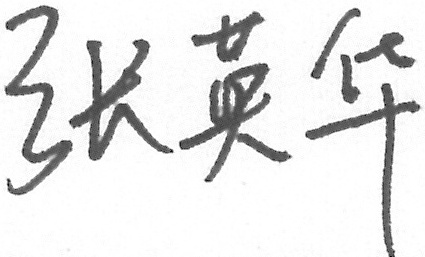 张英华